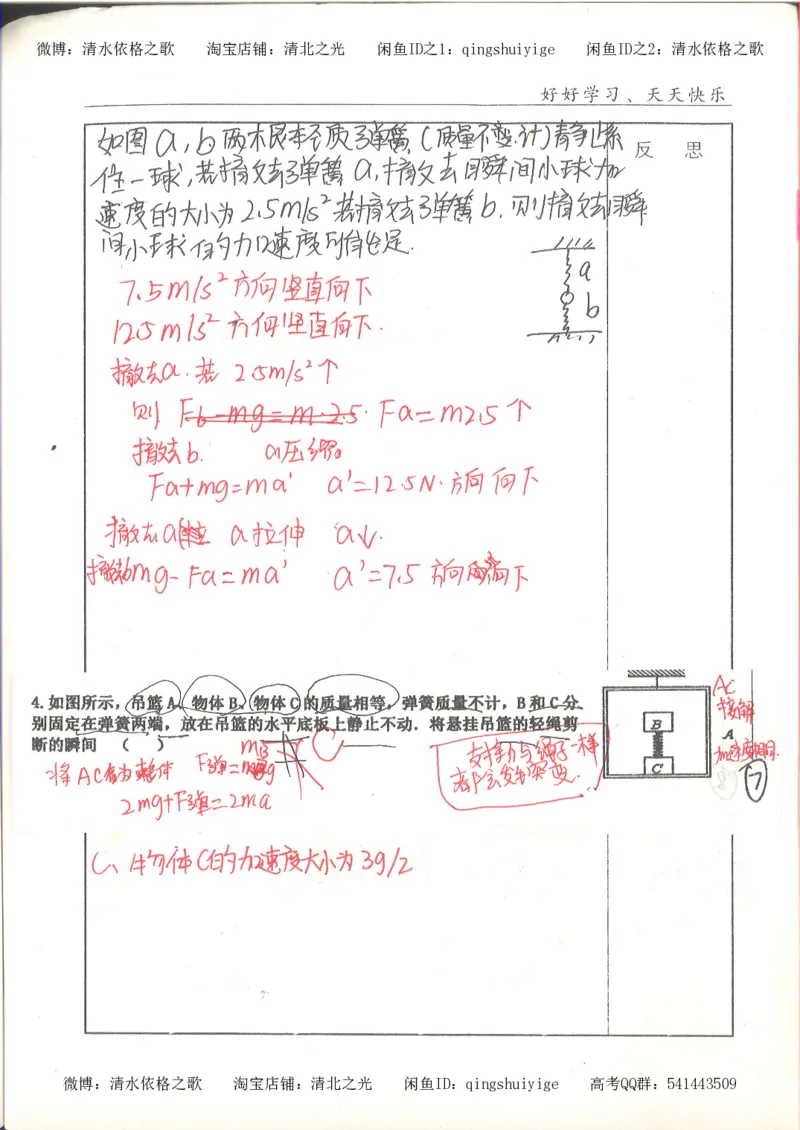 微博：清水依格之歌 淘宝店铺：清北之光 闲鱼ID之1：qingshuiyige 闲鱼ID之2：清水依格之歌
好好学习、天天快乐
反 思
如图a,b两木艮本轻质弹簧(质量不变计)静止系
住一球,若撤去弹簧a,撤去瞬间小球加
速度的大小为2.5m/s²若撤去弹簧b.则撤去瞬
间小球的加速度可能是.
a
b
7.5m/s²方向竖直向下
12.5m/s²方向竖直向下.
撤去a.若 2.5m/s²↑
则 Fb-mg=m·2.5. Fa=m2.5↑
撤去b. a压缩
Fa+mg=ma' a'=12.5N.方向向下
撤去a a拉伸 a↓.
撤去b mg-Fa=ma' a'=7.5 方向向下
4.如图所示，吊篮A、物体B、物体C的质量相等，弹簧质量不计，B和C分
别固定在弹簧两端，放在吊篮的水平底板上静止不动．将悬挂吊篮的轻绳剪
断的瞬间 （ ）
B
C
A
AC
接触
加速度相同.
⑦
将AC看为整体 F弹=mg
2mg+F弹=2ma
C
支持力与绳子一样
都会发生突变.
C、物体C的加速度大小为3g/2
微博：清水依格之歌 淘宝店铺：清北之光 闲鱼ID：qingshuiyige 高考QQ群：541443509